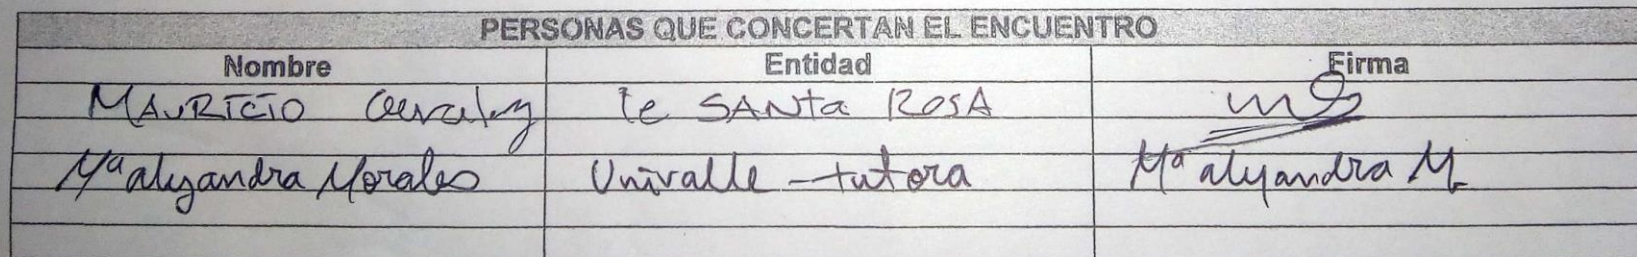 PERSONAS QUE CONCERTAN EL ENCUENTRO
Nombre Entidad Firma
MAURICIO Ie SANTa ROSA
Mª alejandra Morales Univalle - tutora Mª alejandra M.